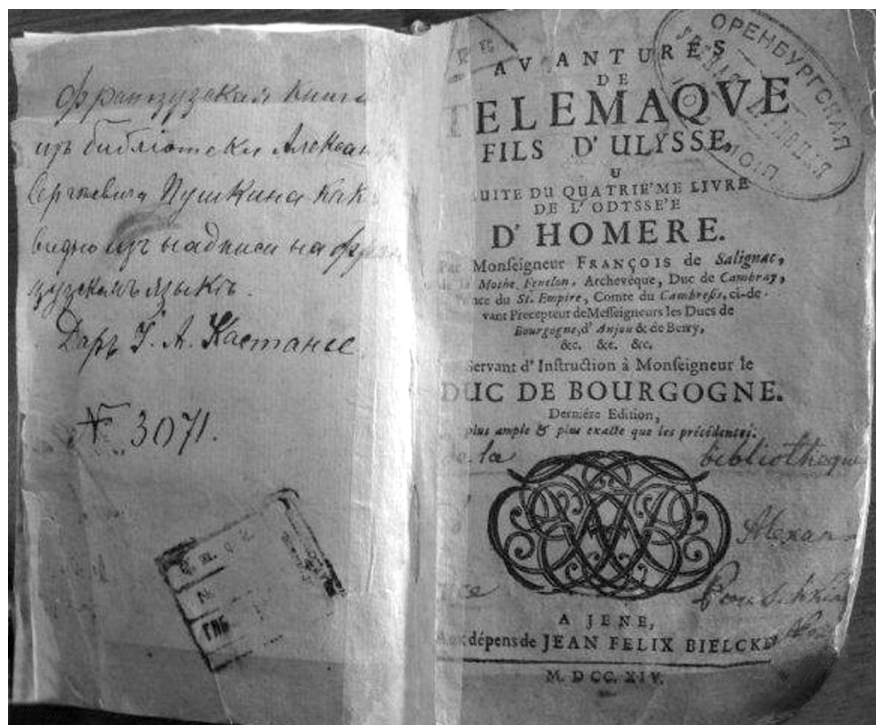 французская книга
изъ библіотеки Александра
Сергѣевича Пушкина как
видно изъ надписи на фран
цузскомъ языкѣ.
Даръ Г. А. Кастанье.
№ 3071.
AVANTURES
DE
TELEMAQVE
FILS D'ULYSSE,
U
SUITE DU QUATRIE'ME LIVRE
DE L'ODYSSE'E
D'HOMERE.
Par Monſeigneur FRANÇOIS de Salignac,
de la Mothe Fenelon, Archevêque, Duc de Cambray,
Prince du St. Empire, Comte du Cambreſis, ci-de-
vant Precepteur de Meſſeigneurs les Ducs de
Bourgogne, d'Anjou & de Berry,
&c. &c. &c.
Servant d'Inſtruction à Monſeigneur le
DUC DE BOURGOGNE.
Derniére Edition,
plus ample & plus exacte que les précédentes.
de la bibliotheque
d' Alexan-
Pouschkin
A JENE,
Aux dépens de JEAN FELIX BIELCKE
M. DCC. XIV.
ОРЕНБУРГСКАЯ